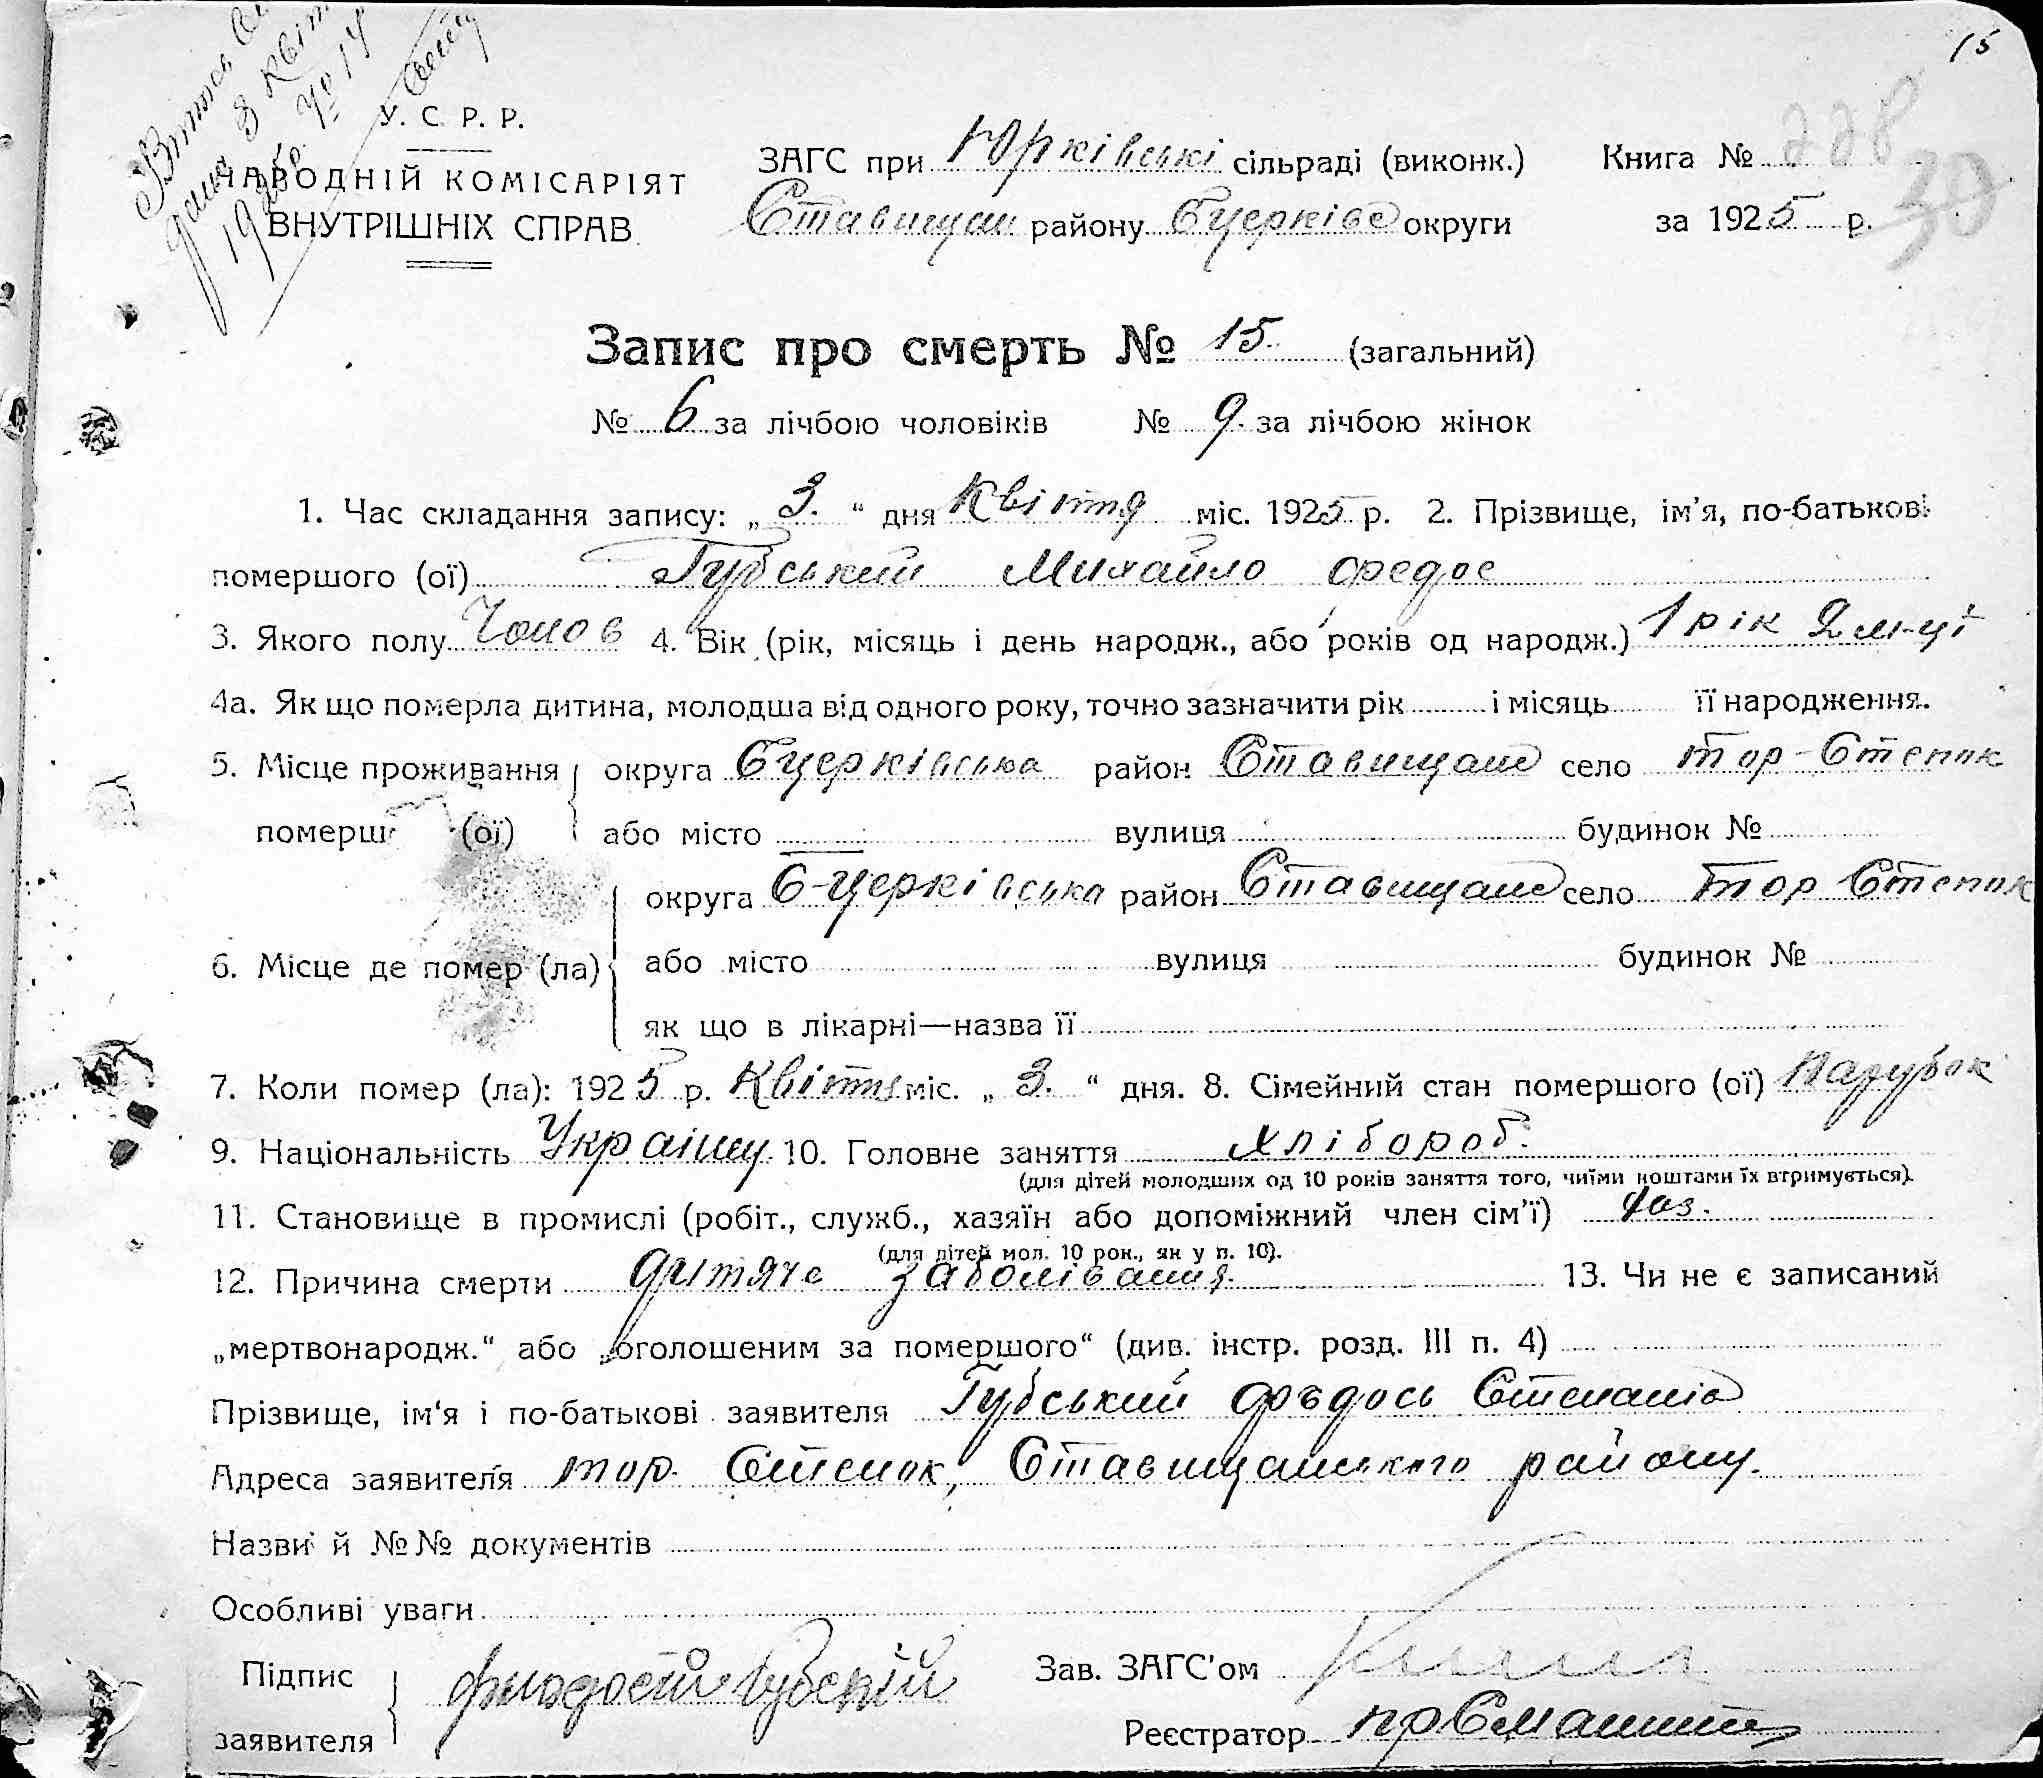 15
дана 8 Квіт
1925р. № 14
У. С. Р. Р.
НАРОДНІЙ КОМІСАРІЯТ
ВНУТРІШНІХ СПРАВ
ЗАГС при Юрківські сільраді (виконк.)
Ставищан району Бцерківс округи
Книга № 228
39
за 1925 р.
Запис про смерть № 15 (загальний)
№ 6 за лічбою чоловіків № 9 за лічбою жінок
1. Час складання запису: „ 3. “ дня Квітня міс. 1925 р. 2. Прізвище, ім'я, по-батькові
помершого (ої) Губський Михайло Федос
3. Якого полу Чолов 4. Вік (рік, місяць і день народж., або років од народж.) 1 рік 2 м-ці
4а. Як що померла дитина, молодша від одного року, точно зазначити рік і місяць її народження.
5. Місце проживання округа Бцерківська район Ставищанс село тор-Степок
померш (ої) або місто вулиця будинок №
округа Б-церківська район Ставищанс село тор Степок
6. Місце де помер (ла) або місто вулиця будинок №
як що в лікарні—назва її
7. Коли помер (ла): 1925 р. Квітня міс. „ 3. “ дня. 8. Сімейний стан помершого (ої) парубок
9. Національність Україну 10. Головне заняття хлібороб.
(для дітей молодших од 10 років заняття того, чиїми коштами їх втримується).
11. Становище в промислі (робіт., служб., хазяїн або допоміжний член сім'ї) хаз.
(для дітей мол. 10 рок., як у п. 10).
12. Причина смерти дитяче заболівання. 13. Чи не є записаний
„мертвонародж.“ або „оголошеним за помершого“ (див. інстр. розд. III п. 4)
Прізвище, ім'я і по-батькові заявителя Губський Фъдось Степанів
Адреса заявителя тор. Степок, Ставищанського району.
Назви й №№ документів
Особливі уваги
Підпис
заявителя Губский
Зав. ЗАГС'ом
Реєстратор